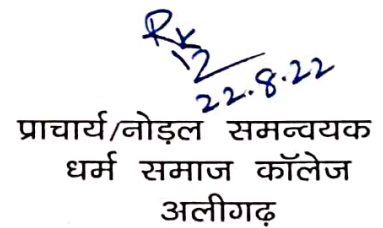 Rk
12
22.8.22
प्राचार्य/नोड़ल समन्वयक
धर्म समाज कॉलेज
अलीगढ़